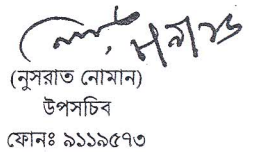 (নুসরাত নোমান)
উপসচিব
ফোনঃ ৯১১৯৫৭৩